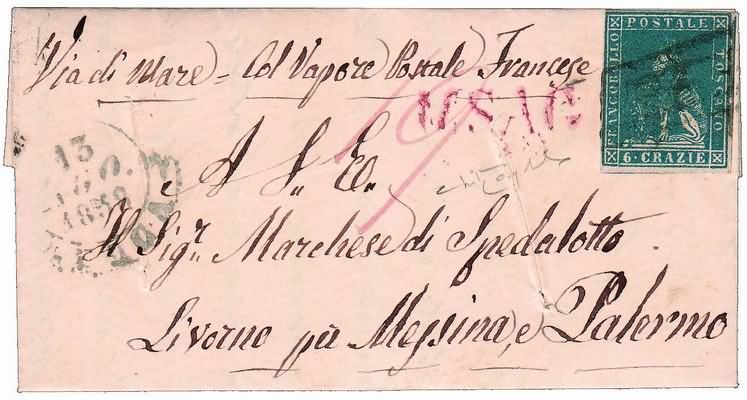 FRANCOBOLLO POSTALE TOSCANO
6·CRAZIE
Via di Mare = Col Vapore Postale Francese
13
A S. E.
Il Sigr. Marchese di Spedalotto
Livorno per Messina, e Palermo